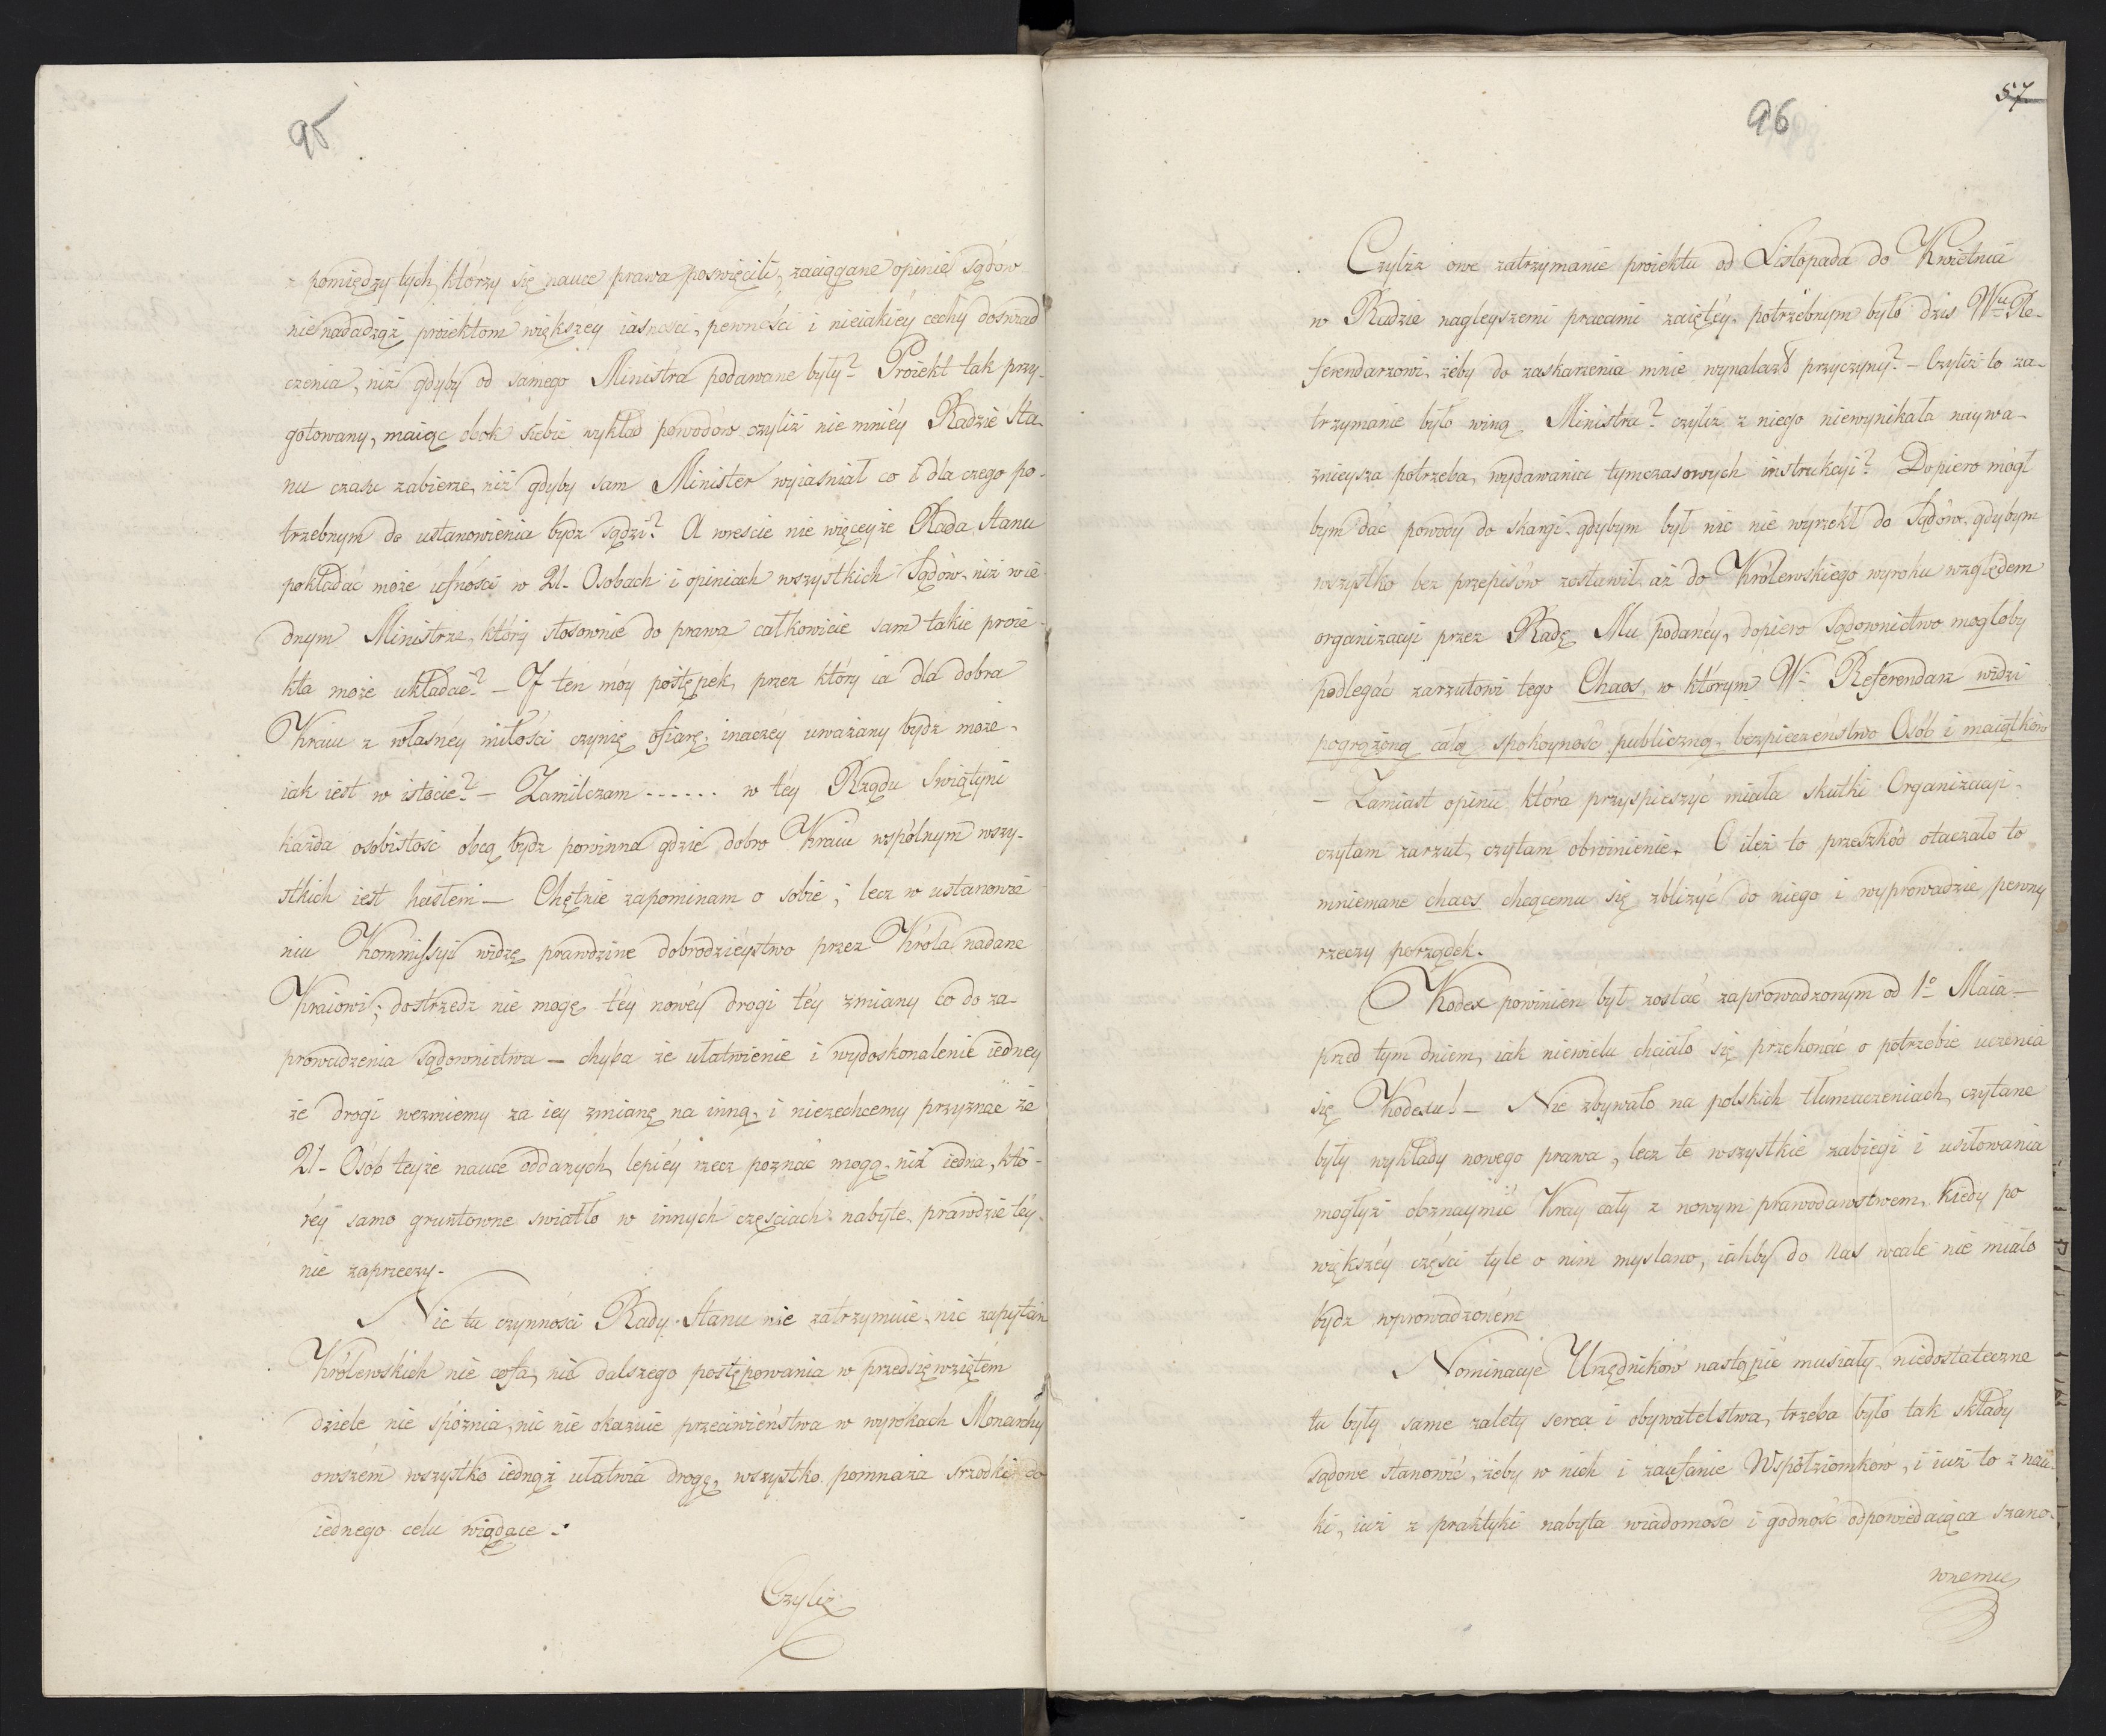 95
z pomiędzy tych, którzy się nauce prawa poswięcili, zaciągane opinie sądów
nie nadadząż proiektom większey iasności, pewności i nieiakiéy cechy doswiad
czenia, niż gdyby od samego Ministra podawane były? Proiekt tak przy-
gotowany, maiąc obok siebie wykład powodów czyliż nie mniéy Radzie Sta-
nu czasu zabierze, niż gdyby sam Minister wyiasniał co i dla czego po-
trzebnym do ustanowienia bydz sądzi? A wreście nie więceyże Rada Stanu
pokładać może ufności w 21. Osobach i opiniach wszystkich Sądów, niż w ie-
dnym Ministrze, który stosownie do prawa całkowicie sam takie proie-
kta może układać? – I ten móy postępek, przez który ia dla dobra
Kraiu z własnéy miłości czynię ofiarę, inaczéy uważany bydź może
iak iest w istocie? – Zamilczam ...... w téy Rządu Swiątyni
każda osobistość obcą bydz powinna gdzie dobro Kraiu wspólnym wszy-
stkich iest hasłem – Chętnie zapominam o sobie; lecz w ustanowie
niu Kommissyi widzę prawdziwe dobrodzieystwo przez Króla nadane
Kraiowi; dostrzedz nie mogę téy nowéy drogi téy zmiany co do za-
prowadzenia sądownictwa – chyba że ułatwienie i wydoskonalenie iedney
że drogi wezmiemy za iey zmianę na inną, i niezechcemy przyznać że
21. Osób teyże nauce oddanych, lepiéy rzecz poznać mogą, niż iedna, któ-
réy samo gruntowne swiatło w innych częściach nabyte, prawdzie téy
nie zaprzeczy.
Nic tu czynności Rady Stanu nie zatrzymuie, nic zapytań
Królewskich nie cofa, nic dalszego postępowania w przedsięwziętém
dziele nie spóznia, nic nie okazuie przeciwieństwa w wyrokach Monarchy
owszém wszystko iednąż ułatwia drogę, wszystko pomnaża srzodki do
iednego celu wiodące.
Czyliż
57
96
Czyliż owe zatrzymanie proiektu od Listopada do Kwietnia
w Radzie nagleyszemi pracami zaiętéy, potrzebnym było dzis Wmu Re-
ferendarzowi, żeby do zaskarżenia mnie wynalazł przyczyny? – Czyliż to za-
trzymanie było winą Ministra? czyliż z niego niewynikała naywa-
żnieysza potrzeba, wydawania tymczasowych instrukcyi? Dopiero mógł
bym dać powody do skargi, gdybym był nic nie wyrzekł do Sądów, gdybym
wszystko bez przepisów zostawił, aż do Królewskiego wyroku względem
organizacyi przez Radę Mu podanéy, dopiero Sądownictwo mogłoby
podlegać zarzutowi tego Chaos, w którym W. Referendarz widzi
pogrążoną całą spokoyność publiczną, bezpieczeństwo Osób i maiątków
– Zamiast opinii która przyspieszyć miała skutki Organizacyi,
czytam zarzut, czytam obwinienie. O ileż to przeszkód otaczało to
mniemane chaos chcącemu się zbliżyć do niego i wyprowadzić pewny
rzeczy porządek.
Kodex powinien był zostać zaprowadzonym od 1o Maia –
przed tym dniem, iak niewielu chciało się przekonać o potrzebie uczenia
się Kodexu! – Nie zbywało na polskich tłumaczeniach, czytane
były wykłady nowego prawa, lecz te wszystkie zabiegi i usiłowania
mogłyż obznaymić Kray cały z nowym prawodawstwem, kiedy po
większéy części tyle o nim myslano, iakby do nas wcale nie miało
bydz wprowadzoném
Nominacye Urzędników nastąpić musiały, niedostateczne
tu były same zalety serca i obywatelstwa, trzeba było tak składy
sądowe stanowić, żeby w nich i zaufanie Współziomków, i iuż to z nau-
ki, iuż z praktyki nabyta wiadomość i godność odpowiedaiąca szano-
wnemu